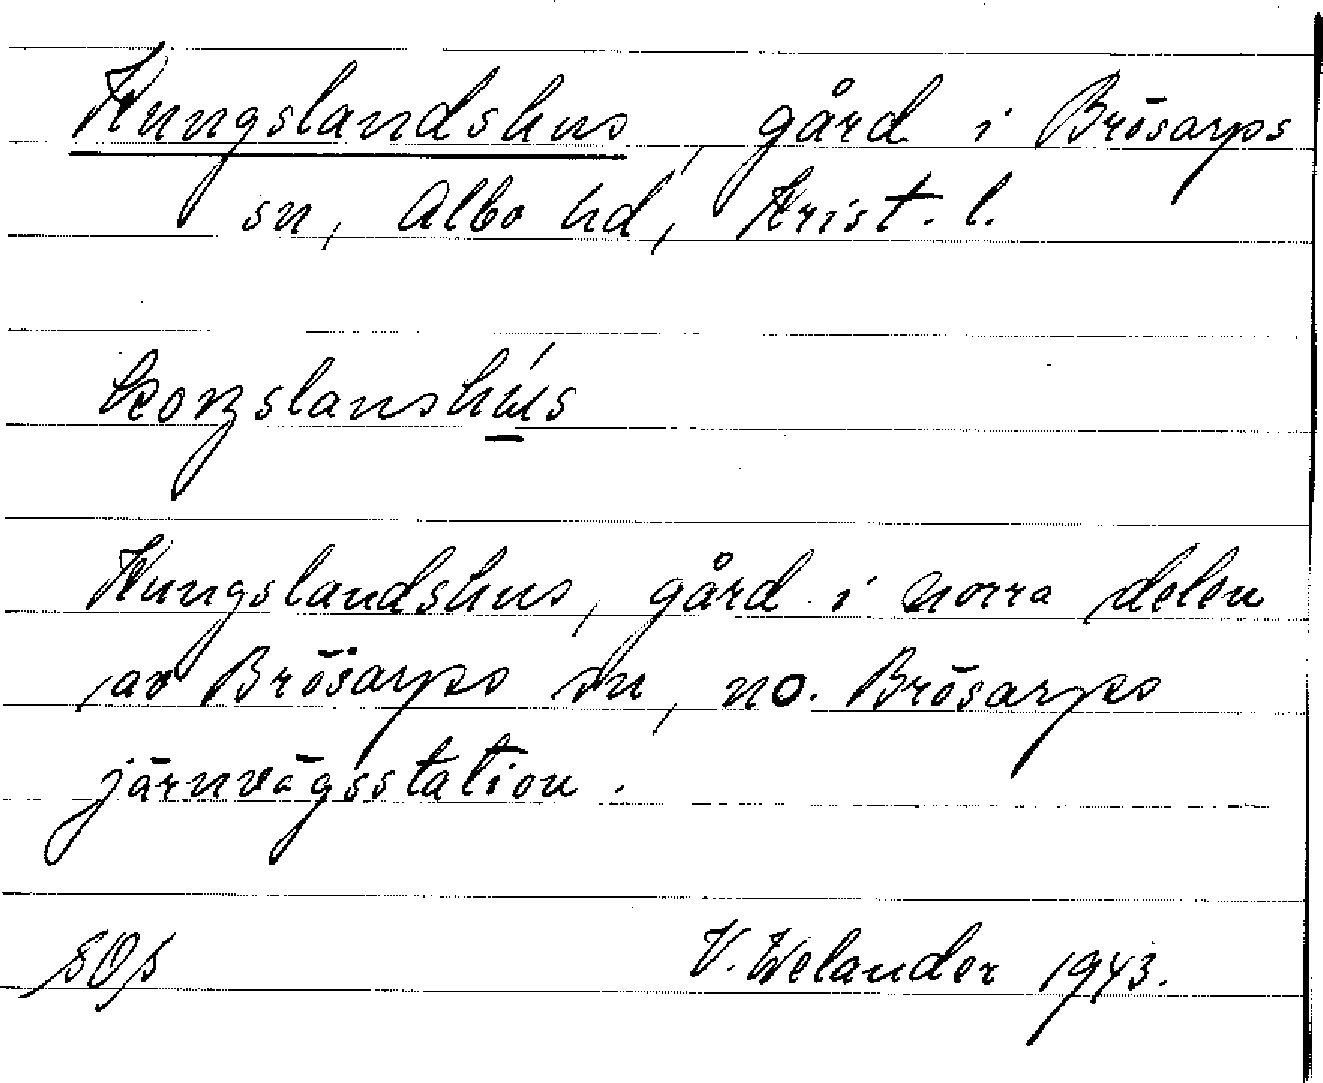 Kungslandshus, gård i Brösarps
sn, Albo hd, Krist. l.
koŋslanshús
Kungslandshus, gård i norra delen
av Brösarps sn, no. Brösarps
järnvägsstation.
SOS V. Welander 1943.